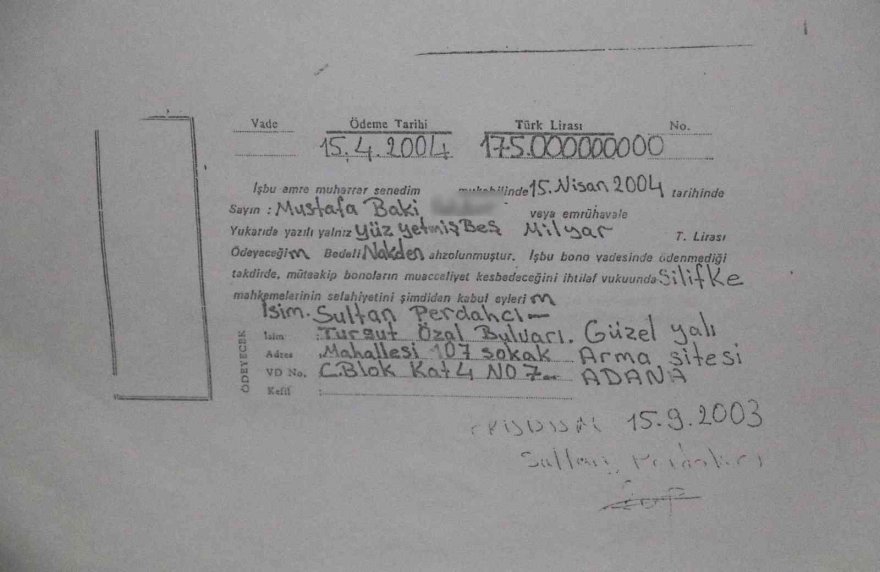 Vade Ödeme Tarihi Türk Lirası No.
15.4.2004 175.000000000
İşbu emre muharrer senedim mukabilinde 15.Nisan 2004 tarihinde
Sayın : Mustafa Baki veya emrühavale
Yukarıda yazılı yalnız Yüz yetmiş Beş Milyar T. Lirası
Ödeyeceğim Bedeli Nakden ahzolunmuştur. İşbu bono vadesinde ödenmediği
takdirde, müteakip bonoların muacceliyet kesbedeceğini ihtilaf vukuunda Silifke
mahkemelerinin selahiyetini şimdiden kabul eylerim
İsim. Sultan Perdahcı
İsim : Turgut Özal Bulvarı. Güzel yalı
Adres Mahallesi 107 sokak Arma sitesi
VD No. C.Blok Kat 4 NO 7 ADANA
Kefil :
ÖDEYECEK
15.9.2003
Sultan